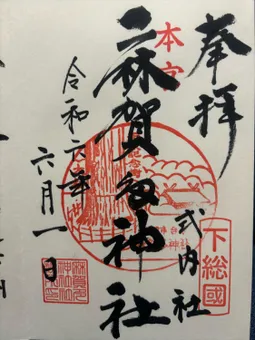 奉拝
下総國
式内社
本宮
麻賀多神社
令和六年
六月一日